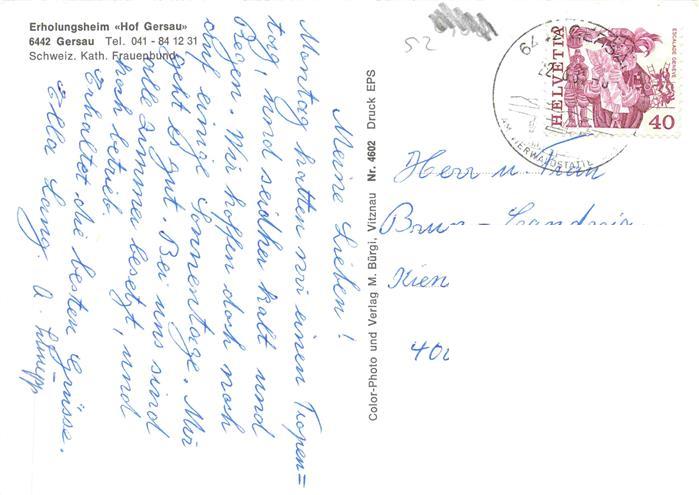 Erholungsheim «Hof Gersau»
6442 Gersau Tel. 041 - 84 12 31
Schweiz. Kath. Frauenbund
Meine Lieben!
Montag hatten wir einen Tropen=
tag, und seidher kalt und
Regen. Wir hoffen doch noch
auf einige Sonnentage. Mir
geht es gut. Bei uns sind
alle Zimmer besetzt, und
hoch betrieb.
Erhaltet die besten Grüsse.
Ella Lang.
Color-Photo und Verlag M. Bürgi, Vitznau Nr. 4602 Druck EPS
52
HELVETIA
ESCALADE GENÈVE
40
AM VIERWALDSTÄTTE
Herr u. Frau
Kien